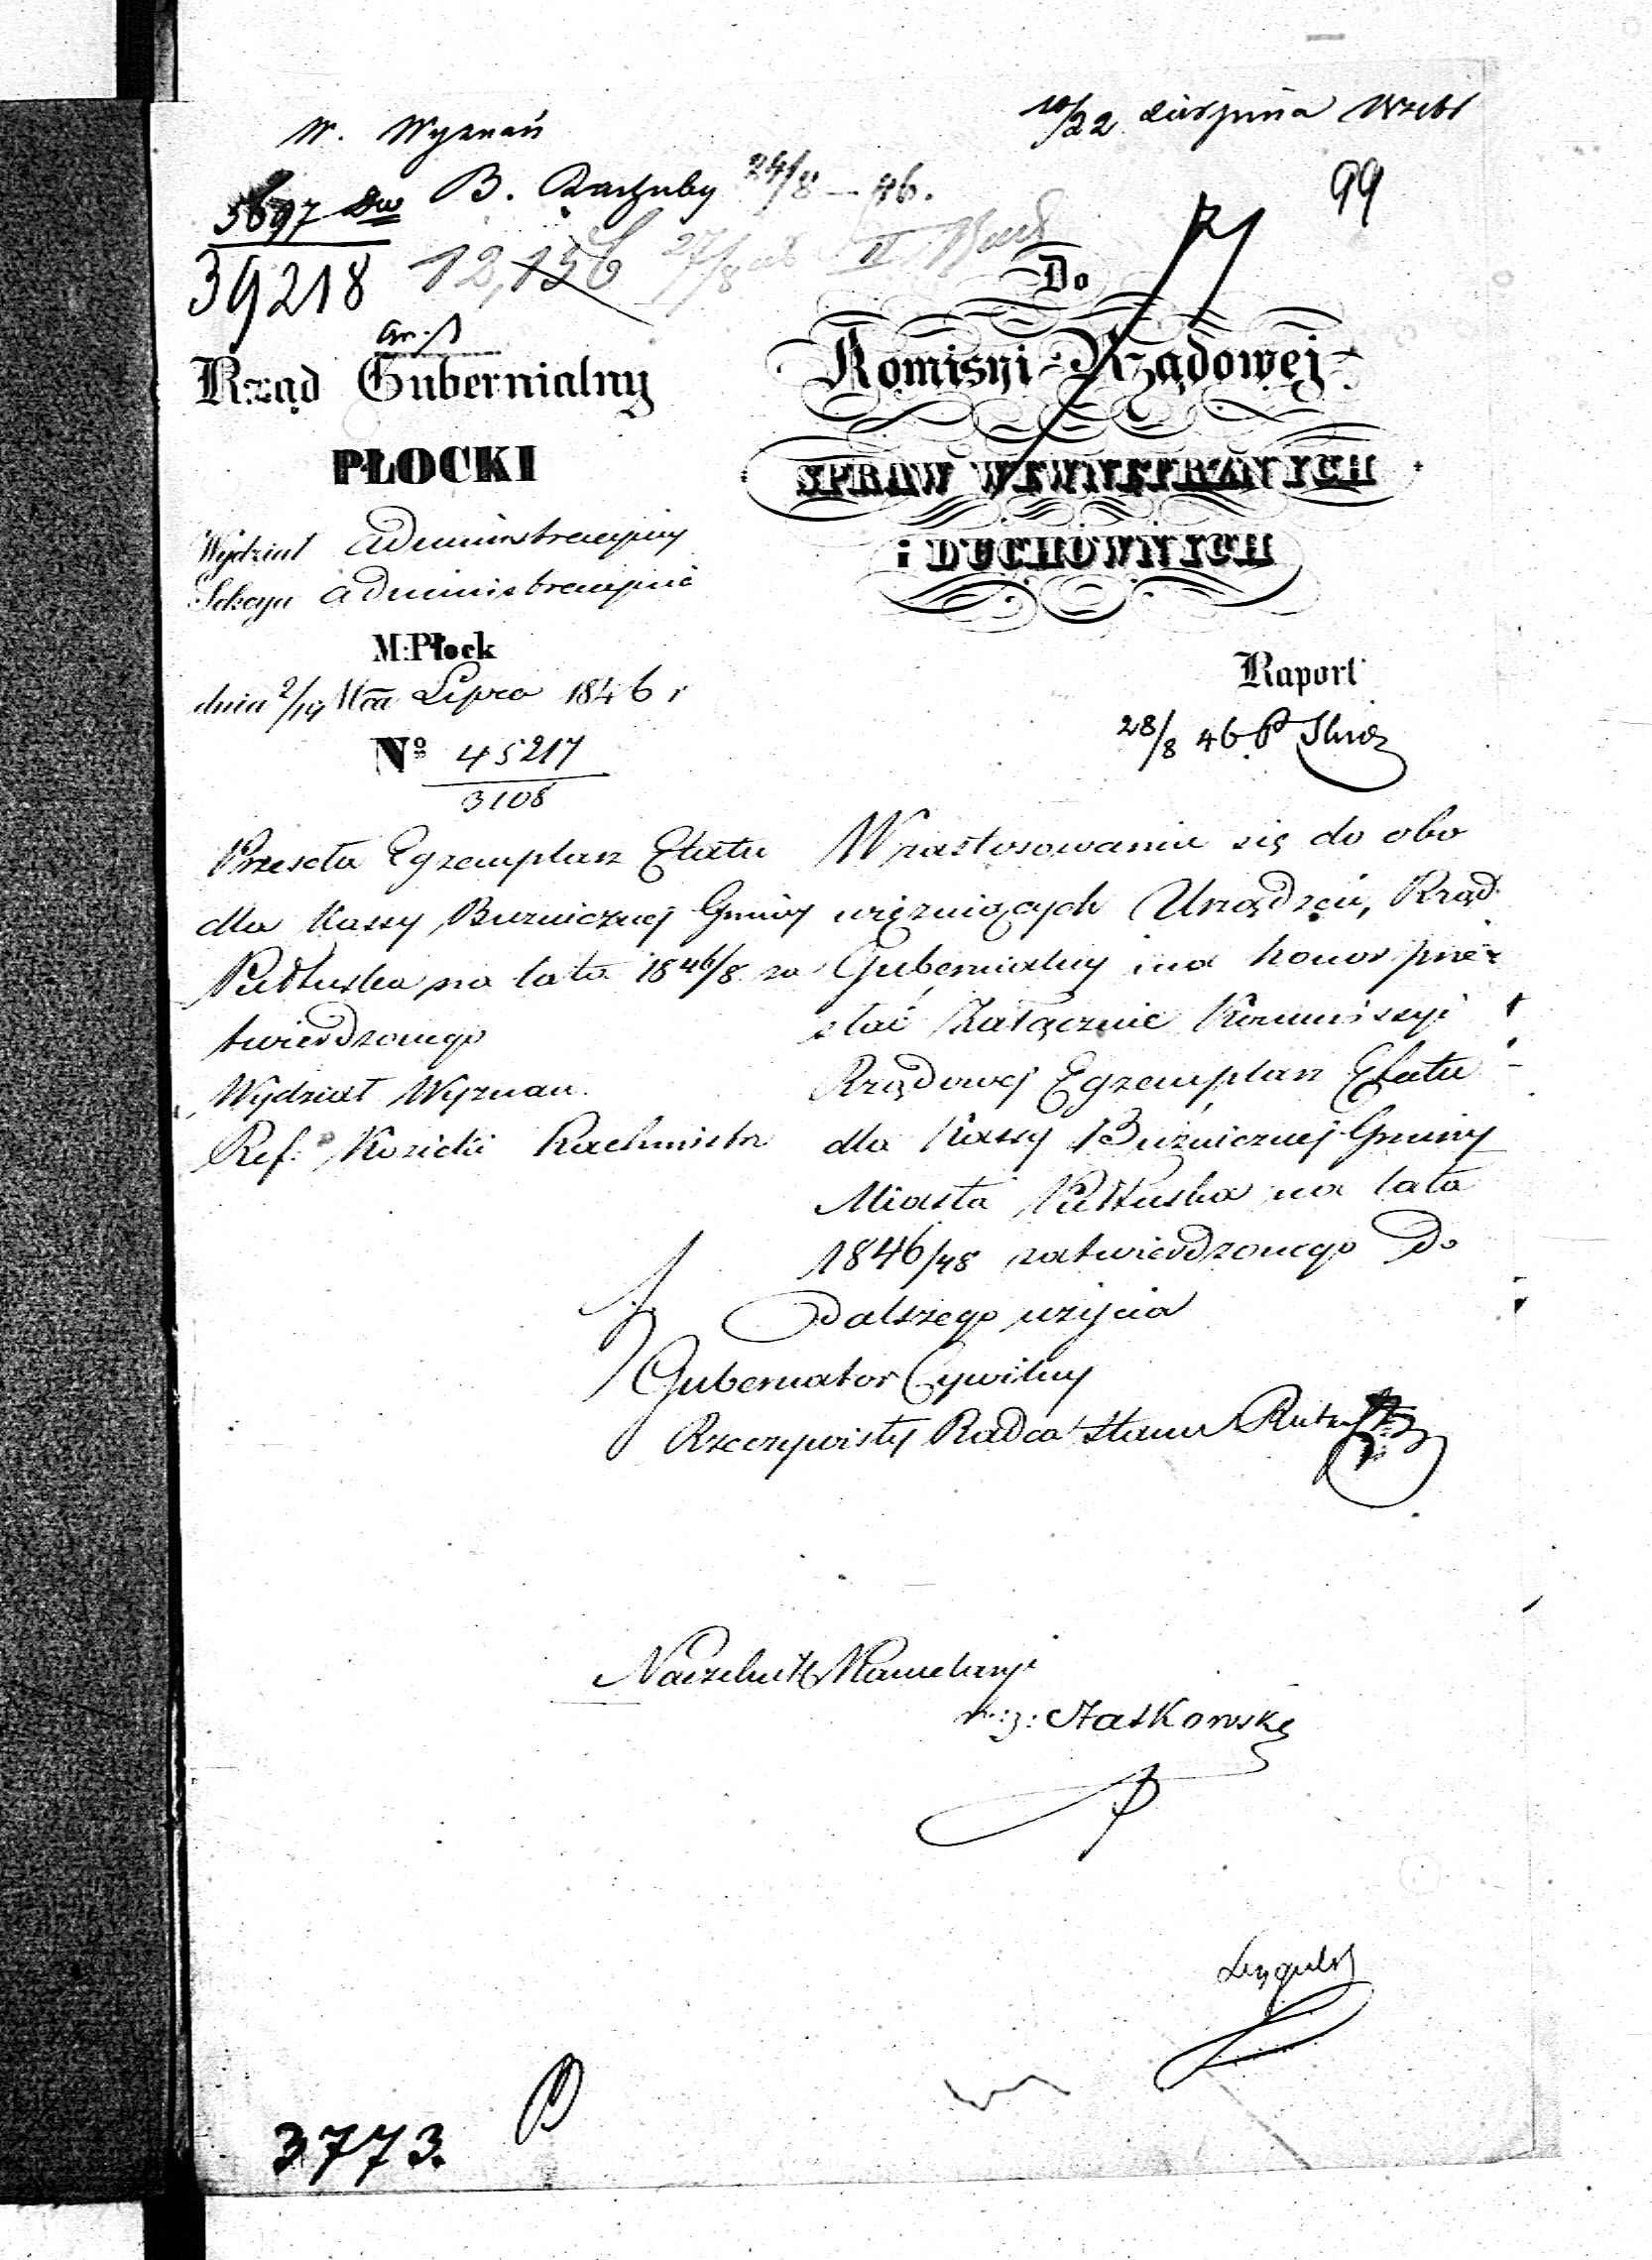 W. Wyznań
10/22 Sierpnia
99
5697
B. Rachuby 24/8 – 46.
39218
12,156 27/8 II
Do
Rząd Gubernialny
PŁOCKI
Komisyi Rządowej
SPRAW WEWNĘTRZNYCH
i DUCHOWNYCH
Wydział Administracyjny
Sekcya Administracyjna
M: Płock
dnia 2/14 Mca Lipca 1846 r
Nº 45217
3108
Raport
28/8 46
Przesyła Egzemplarz Etatu
dla Kassy Bużniczney Gminy
Pułtuska na lata 1846/8 za
twierdzonego
Wydział Wyznań.
Ref: Kozicki Rachmistrz
W zastosowaniu się do obo
więzuiących Urządzeń, Rząd
Gubernialny ma honor prze
słać załącznie Kommissyi
Rządowej Egzemplarz Etatu
dla Kassy Bużniczney Gminy
Miasta Pułtuska na lata
1846/48 zatwierdzonego do
dalszego użycia
Gubernator Cywilny
Rzeczywisty Radca Stanu
Naczelnik Kancelaryi
3773.